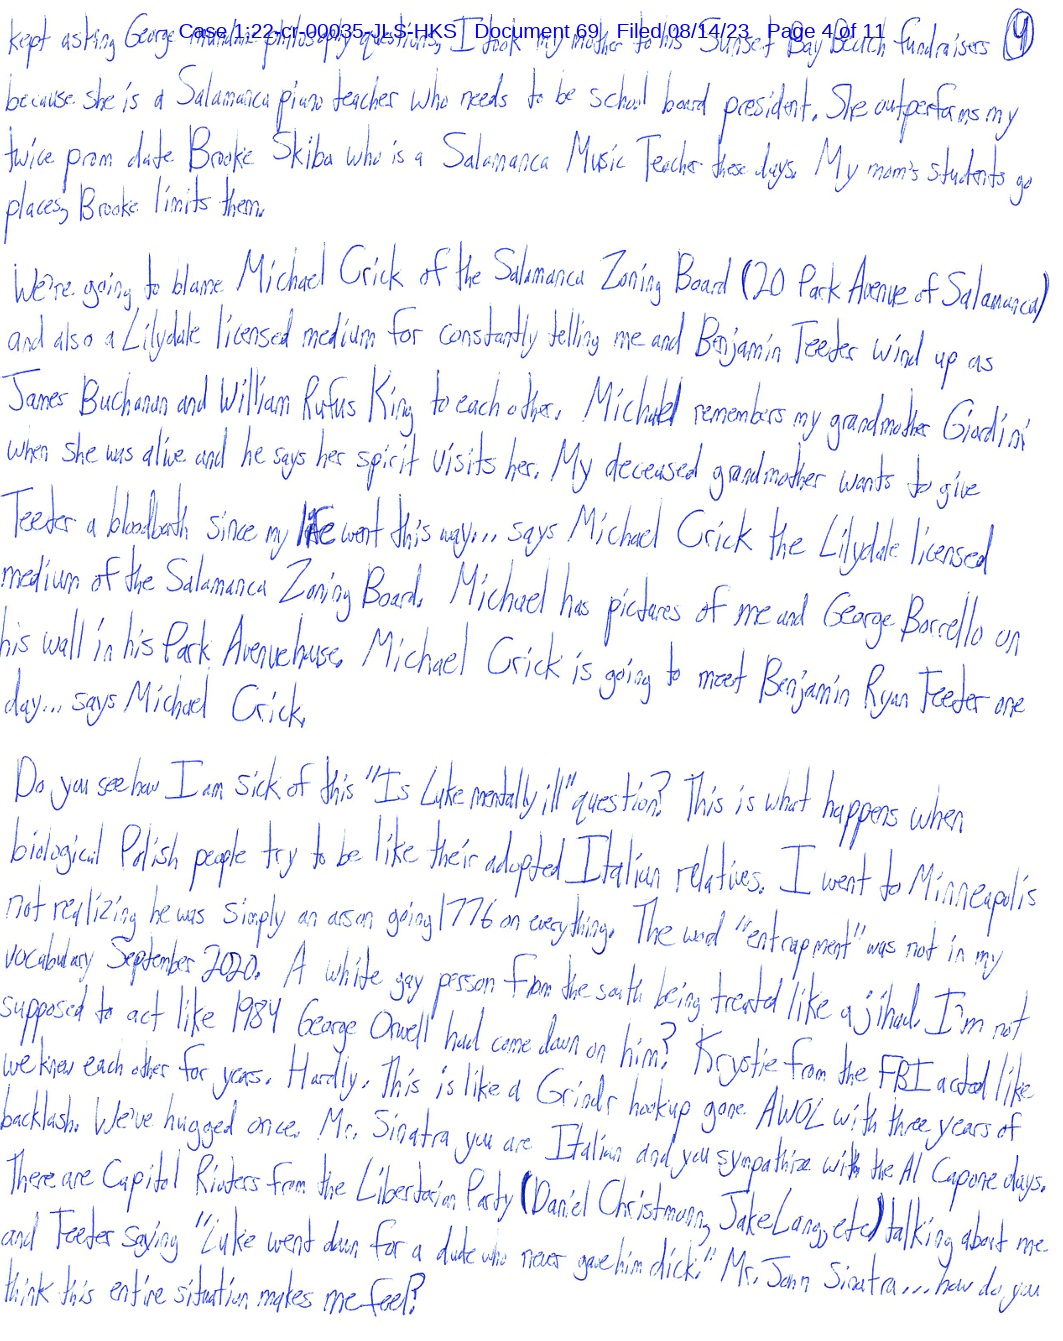 Case 1:22-cr-00035-JLS-HKS Document 69 Filed 08/14/23 Page 4 of 11
kept asking George philosophy questions, I took my mother to his Sunset Bay Beach fundraisers (4)
because she is a Salamanca piano teacher who needs to be school board president. She outperforms my
twice prom date Brooke Skiba who is a Salamanca Music Teacher these days. My mom's students go
places, Brooke limits them.
We're going to blame Michael Crick of the Salamanca Zoning Board (20 Park Avenue of Salamanca)
and also a Lilydale licensed medium for constantly telling me and Benjamin Teeter wind up as
James Buchanan and William Rufus King to each other. Michael remembers my grandmother Giardini
when she was alive and he says her spirit visits her. My deceased grandmother wants to give
Teeter a bloodbath since my life went this way... says Michael Crick the Lilydale licensed
medium of the Salamanca Zoning Board. Michael has pictures of me and George Borrello on
his wall in his Park Avenue house. Michael Crick is going to meet Benjamin Ryan Teeter one
day... says Michael Crick.
Do you see how I am sick of this "Is Luke mentally ill" question? This is what happens when
biological Polish people try to be like their adopted Italian relatives. I went to Minneapolis
not realizing he was simply an arson going 1776 on everything. The word "entrapment" was not in my
vocabulary September 2020. A white gay person from the south being treated like a jihad. I'm not
supposed to act like 1984 George Orwell had come down on him? Krystie from the FBI acted like
we knew each other for years. Hardly. This is like a Grindr hookup gone AWOL with three years of
backlash. We've hugged once. Mr. Sinatra you are Italian and you sympathize with the Al Capone days.
There are Capitol Rioters from the Libertarian Party (Daniel Christmann, Jake Lang, etc) talking about me
and Teeter saying "Luke went down for a dude who never gave him dick." Mr. Jonn Sinatra... how do you
think this entire situation makes me feel?